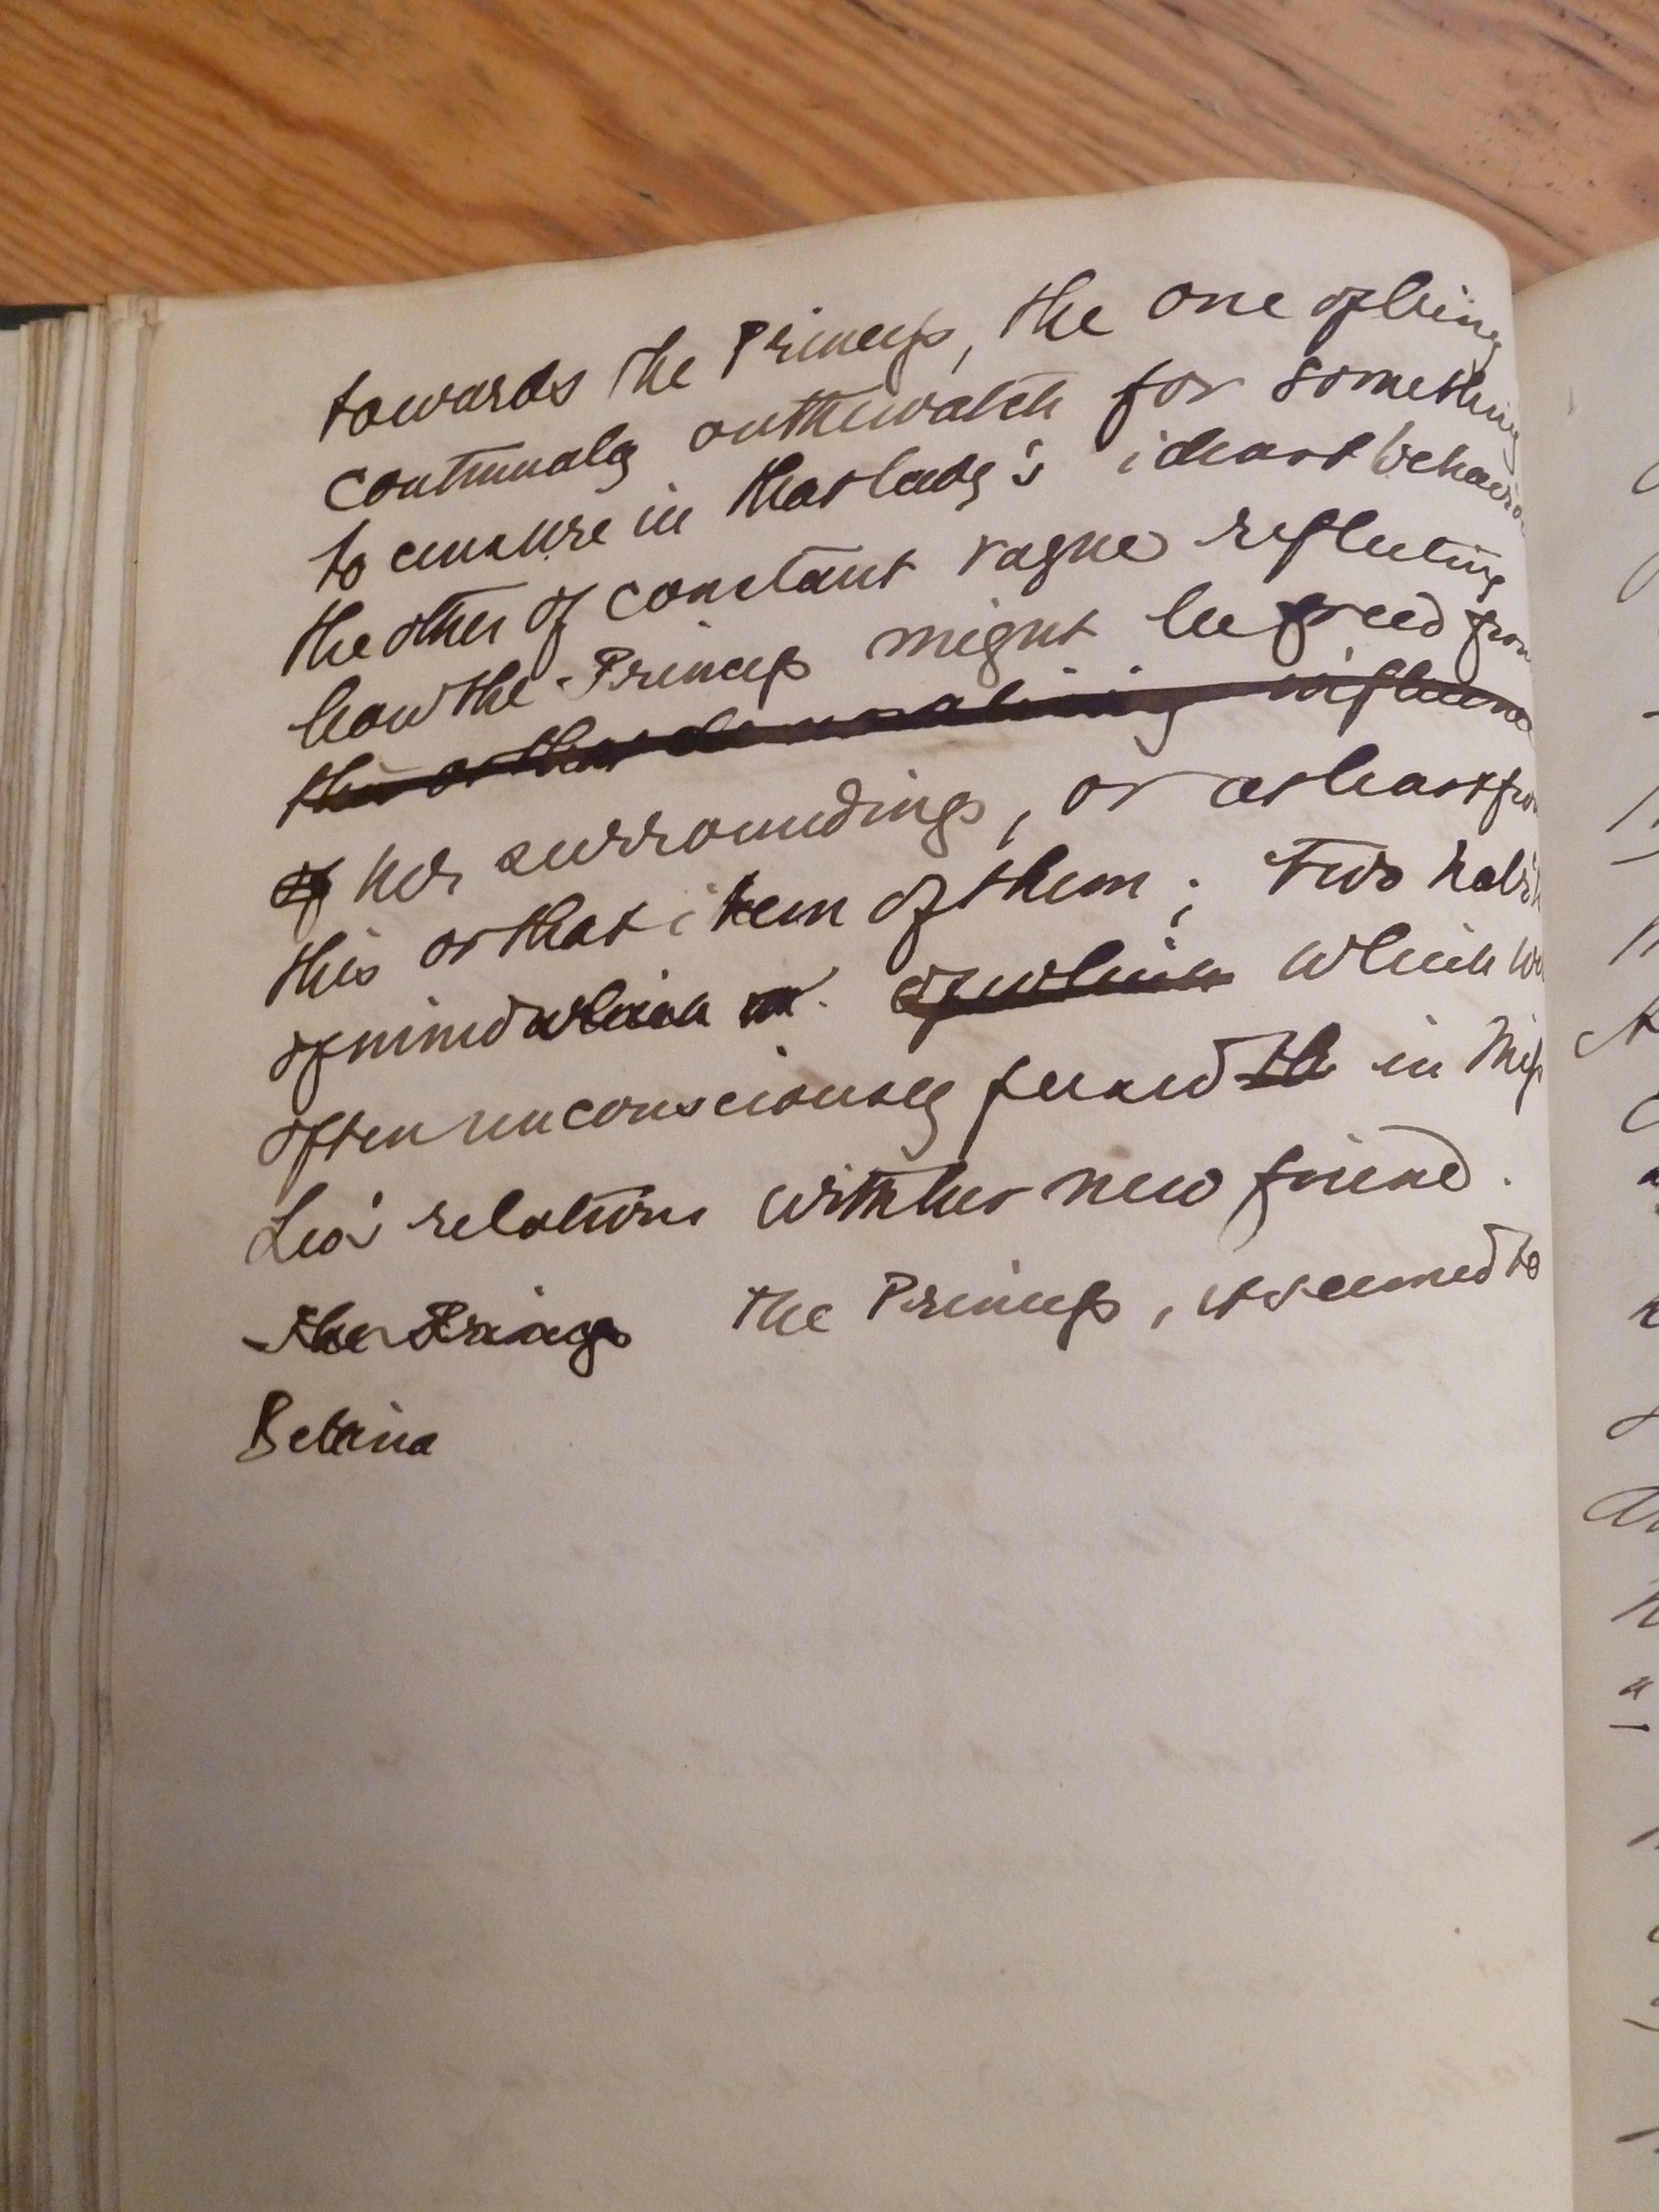 towards the Princess, the one of being
continually on the watch for something
to censure in that lady's ideas or behavio
the other of constant vague reflecting
how the Princess might be freed from
this or that demoralising influence
of her surroundings, or at least from
this or that item of them; Two habit
of mind which of which which we
often unconsciously fused th in Miss
relations with her new friend.
The Princess The Princess, it seemed to
Bettina